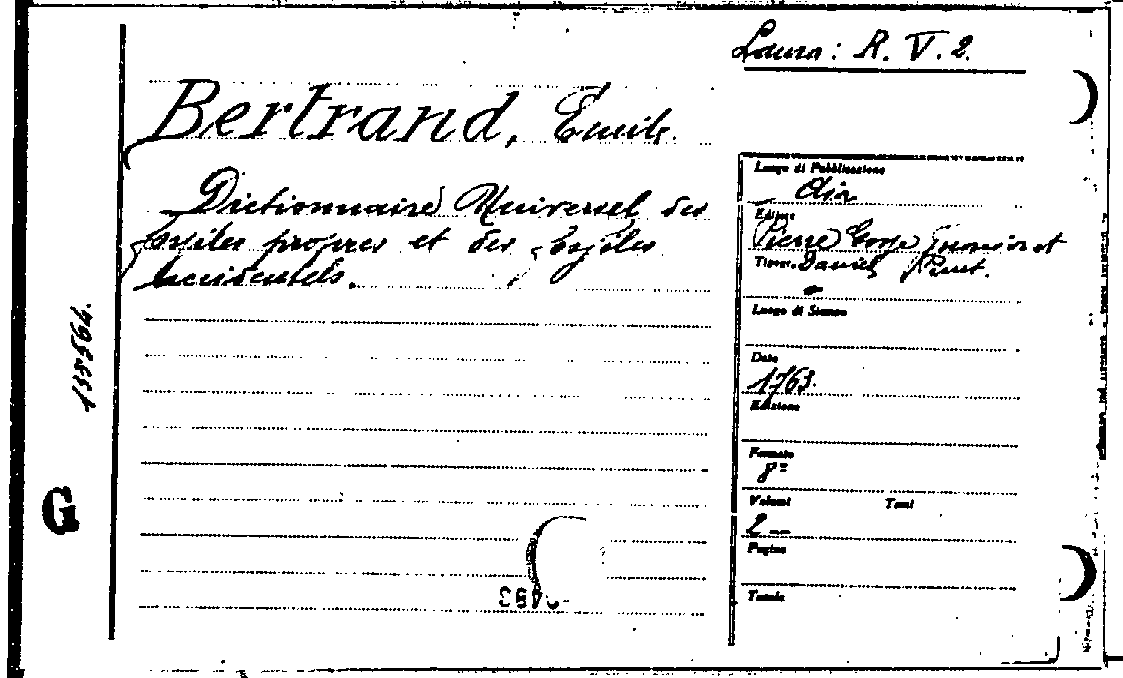 Laura: R. V. 2.
Bertrand, Emile.
Dictionnaire Universel des
fossiles propres et des fossiles
accidentels.
133564.
G
Luogo di Pubblicazione
Editore
Pierre Gosse Junior et
Tipogr. Daniel Pinet.
Luogo di Stampa
Data
1763.
Edizione
Formato
8º
Volumi Tomi
2
Pagine
Tavole